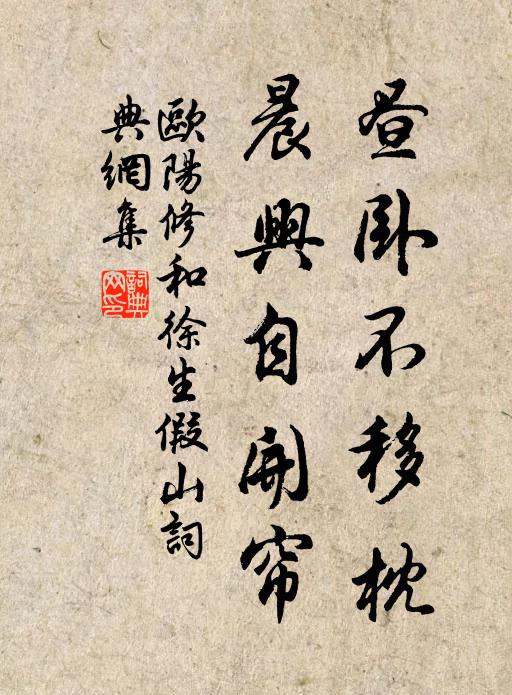 昼卧不移枕
晨興自開帘
歐陽修和徐生假山詞
典網集
詞典网印